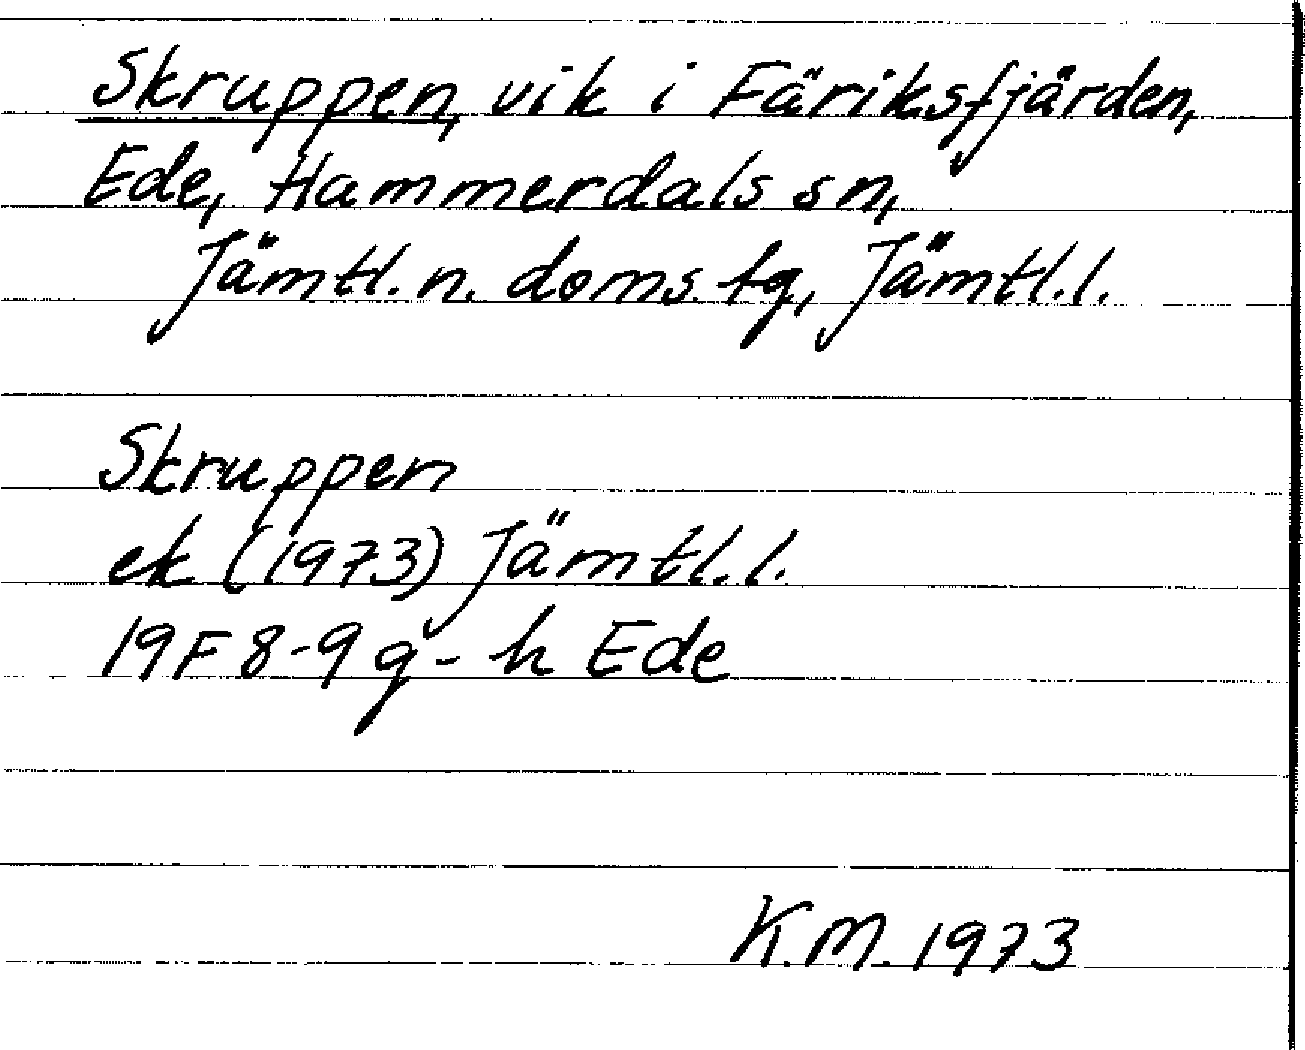 Skruppen, vik i Färiksfjärden,
Ede, Hammerdals sn,
Jämtl. n. doms. fg, Jämtl. l.
Skruppen
ek (1973) Jämtl. l.
19F 8-9 g-h Ede
K.M. 1973